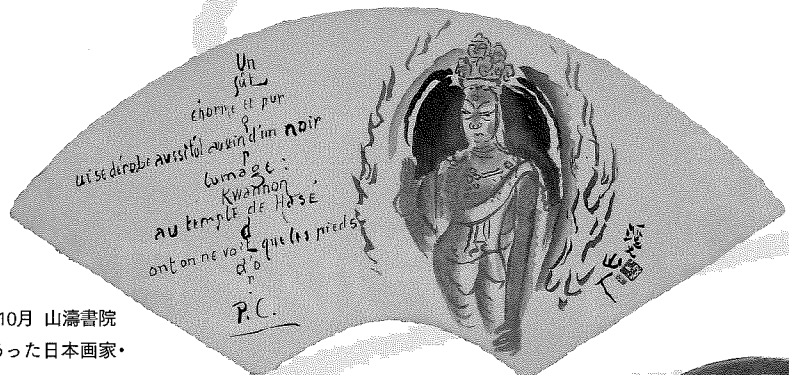 Un
fût
énorme et pur
q
ui se dérobe aussitôt au sein d'un noir
p
lumage :
Kwannon
au temple de Hasé
d
ont on ne voit que les pieds
d'o
r
.
P.C.
山人
10月 山濤書院
った日本画家・